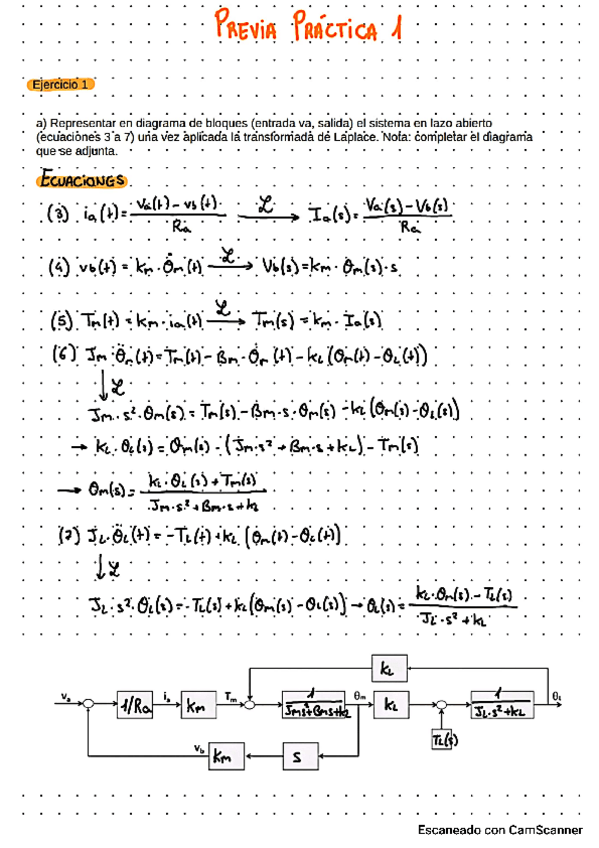 PREVIA PRÁCTICA 1
Ejercicio 1
a) Representar en diagrama de bloques (entrada va, salida) el sistema en lazo abierto
(ecuaciones 3 a 7) una vez aplicada la transformada de Laplace. Nota: completar el diagrama
que se adjunta.
ECUACIONES
(3) ia(t) = (va(t) - vb(t)) / Ra ℒ→ Ia(s) = (Va(s) - Vb(s)) / Ra
(4) vb(t) = km · θ̇m(t) ℒ→ Vb(s) = km · θm(s) · s
(5) Tm(t) = km · ia(t) ℒ→ Tm(s) = km · Ia(s)
(6) Jm · θ̈m(t) = Tm(t) - Bm · θ̇m(t) - kL (θm(t) - θL(t))
↓ ℒ
Jm · s² · θm(s) = Tm(s) - Bm · s · θm(s) - kL (θm(s) - θL(s))
→ kL · θL(s) = θm(s) · (Jm · s² + Bm · s + kL) - Tm(s)
→ θm(s) = (kL · θL(s) + Tm(s)) / (Jm · s² + Bm · s + kL)
(7) JL · θ̈L(t) = -TL(t) + kL (θm(t) - θL(t))
↓ ℒ
JL · s² · θL(s) = -TL(s) + kL (θm(s) - θL(s)) → θL(s) = (kL · θm(s) - TL(s)) / (JL · s² + kL)
kL
va 1/Ra ia km Tm 1 / (Jms² + Bms + kL) θm kL 1 / (JL · s² + kL) θL
TL(s)
vb km s
Escaneado con CamScanner